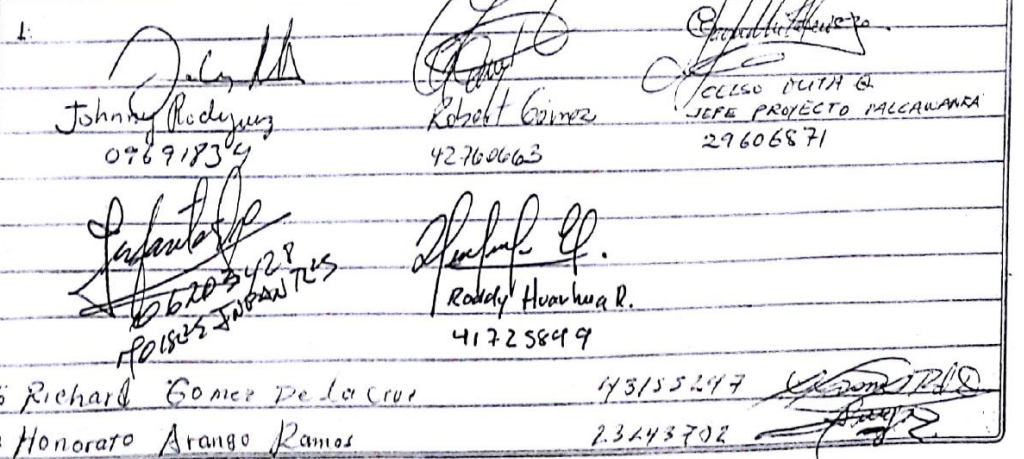 1:
Johnny Rodryuez
09691834
Robert Gomez
42760663
CELSO MUTA Q
JEFE PROYECTO PALCAWANKA
29606871
06203428
MOISES INFANTES
Roddy Huarhua R.
41725849
Richard Gomez De la Cruz 43155247
Honorato Arango Ramos 23243702